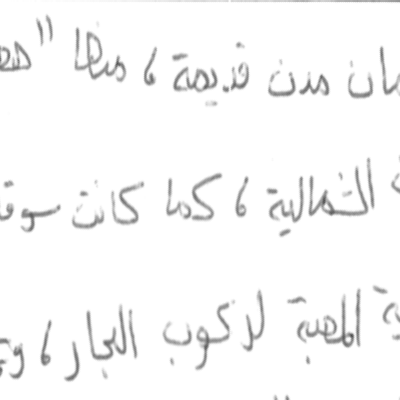 مدن قديمة ، منها "
الشمالية ، كما كانت
المحبة لركوب البحار ،